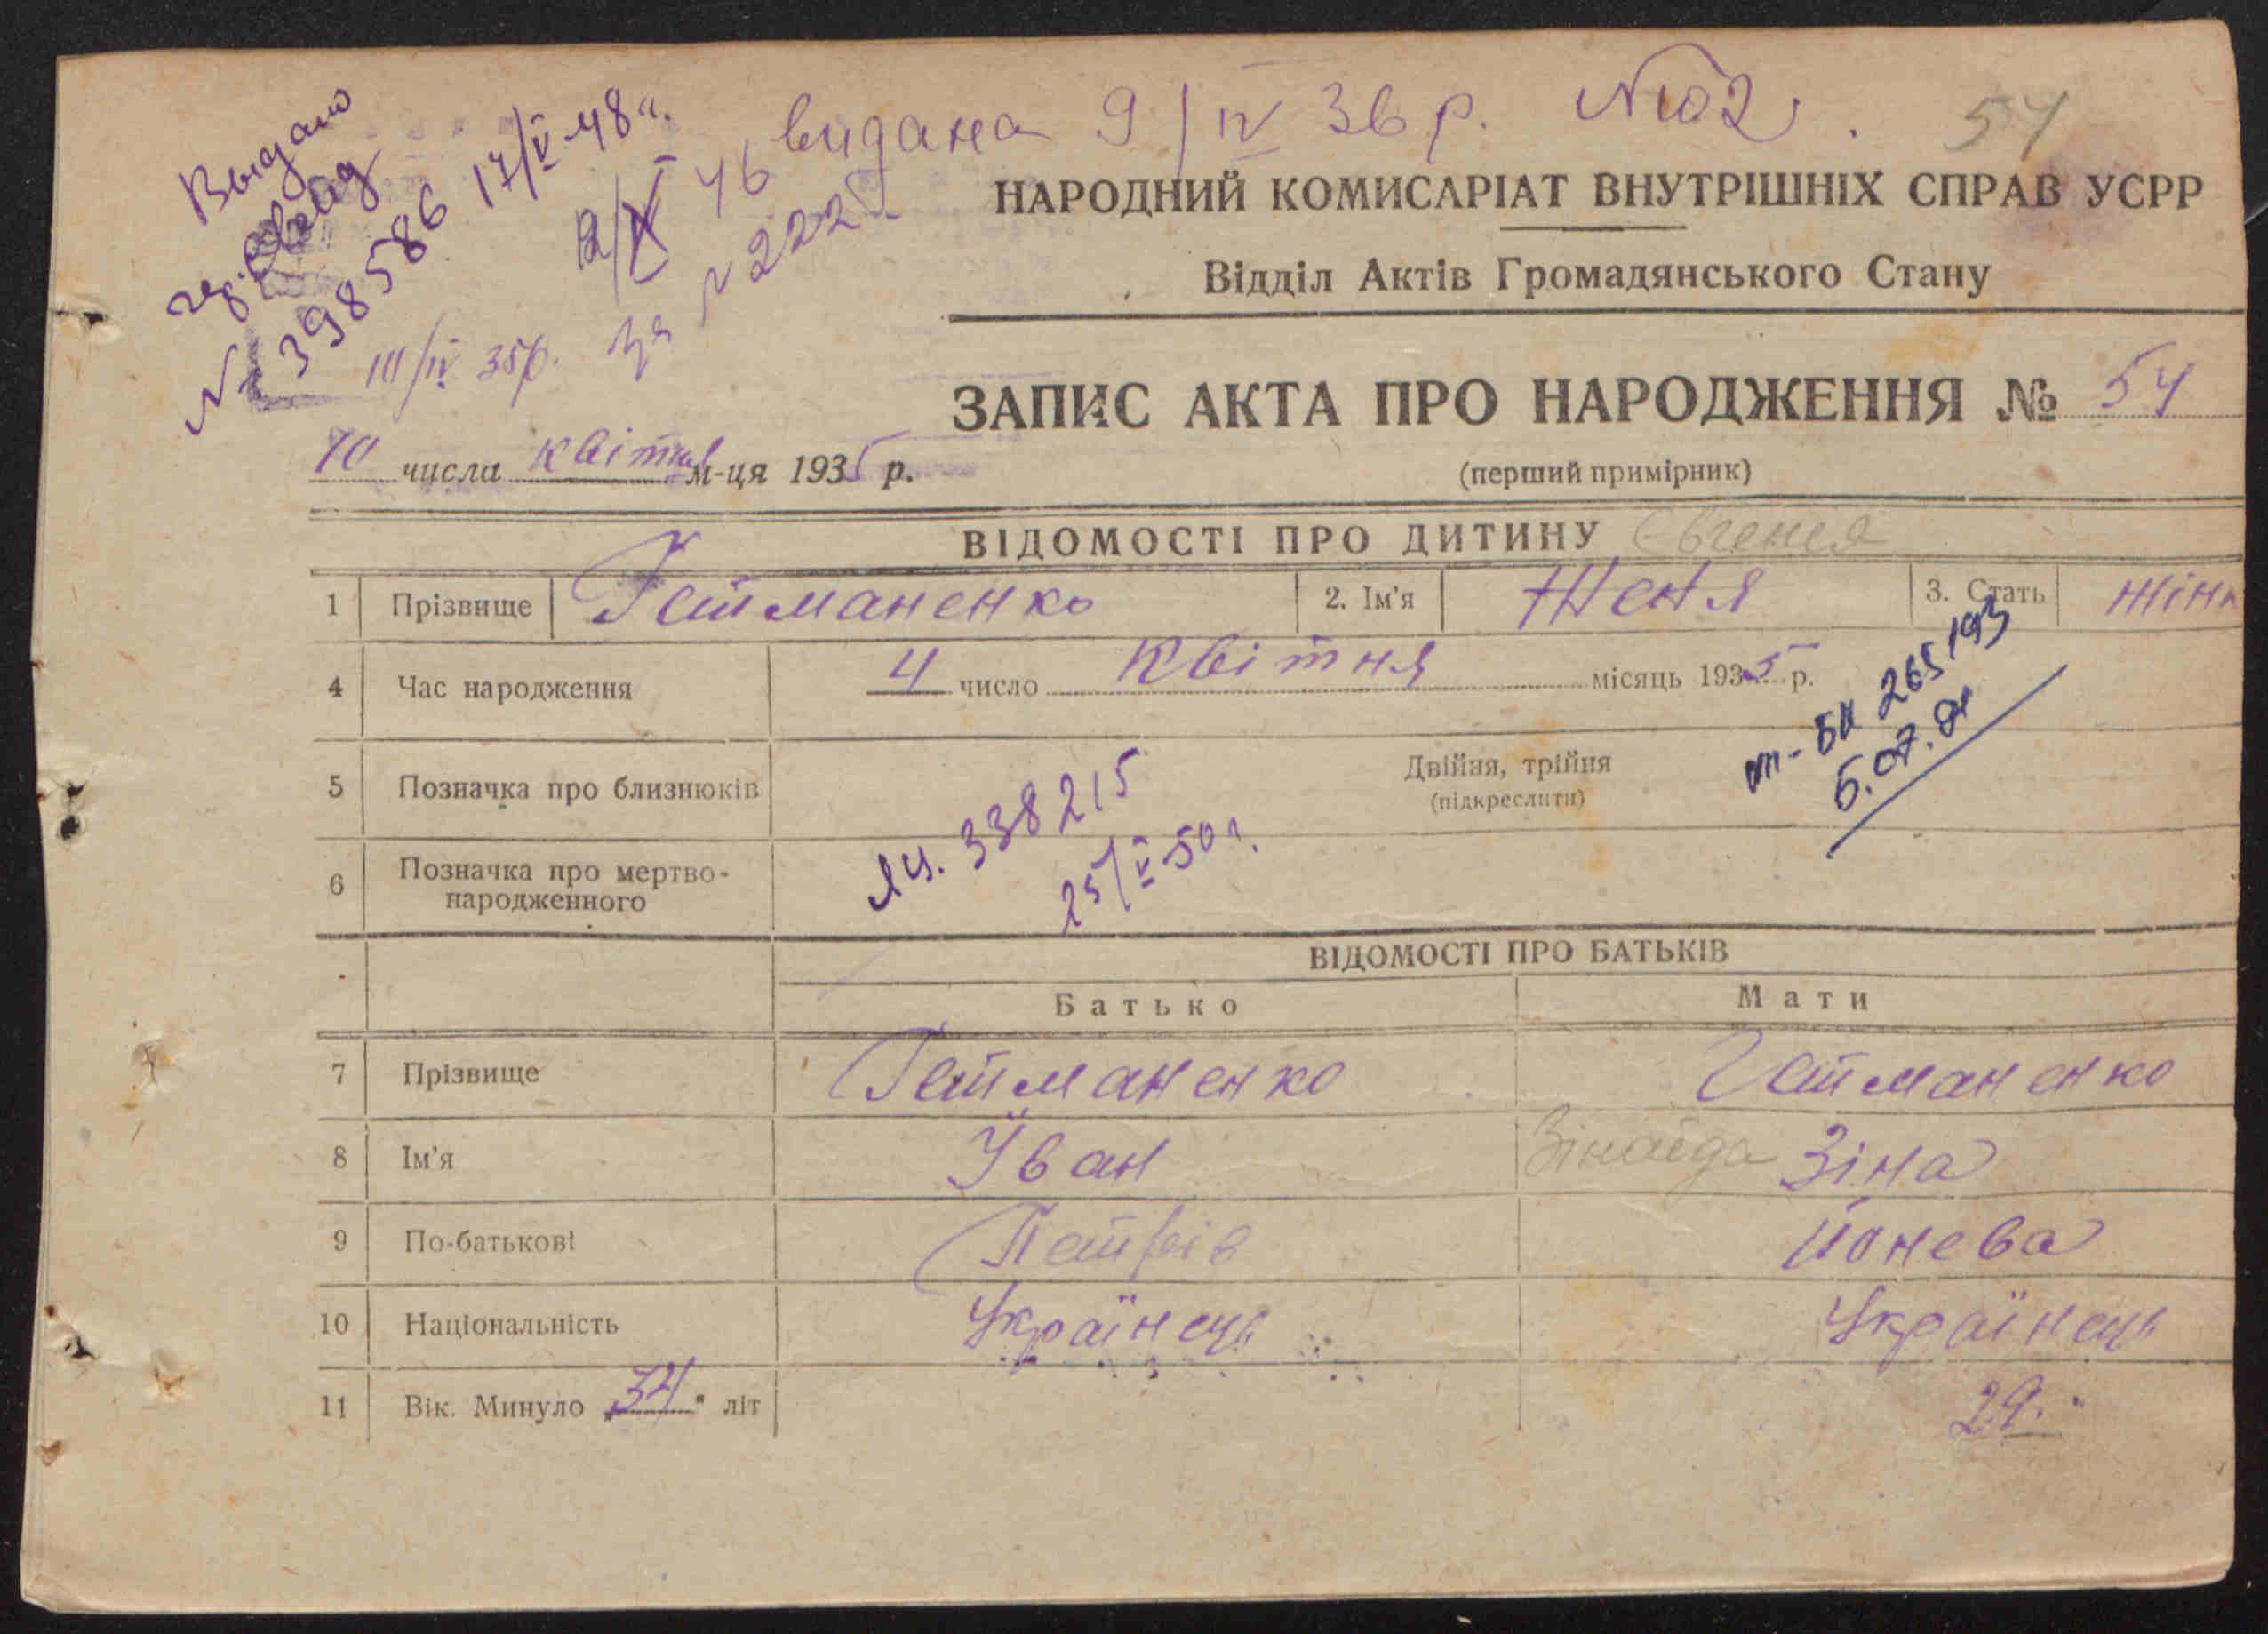 видана 9/IV 36 р. №102.
54
Выдано
№ 398586 17/V-48 г.
46
№ 222
10/IV 35р.
НАРОДНИЙ КОМИСАРІАТ ВНУТРІШНІХ СПРАВ УСРР
Відділ Актів Громадянського Стану
ЗАПИС АКТА ПРО НАРОДЖЕННЯ № 54
10 числа квітня м-ця 1935 р.
(перший примірник)
ВІДОМОСТІ ПРО ДИТИНУ Євгенія
1 Прізвище Гетманенко 2. Ім'я Женя 3. Стать Жінк
4 Час народження 4 число Квітня місяць 1935 р.
265193
5.07.
5 Позначка про близнюків Двійня, трійня
(підкреслити)
338215
25/V-50 г.
6 Позначка про мертво-
народженного
ВІДОМОСТІ ПРО БАТЬКІВ
Батько Мати
7 Прізвище Гетманенко Гетманенко
8 Ім'я Іван Зінаїда Зіна
9 По-батькові Петрів Йонева
10 Національність Українець Українець
11 Вік. Минуло „34" літ 29.